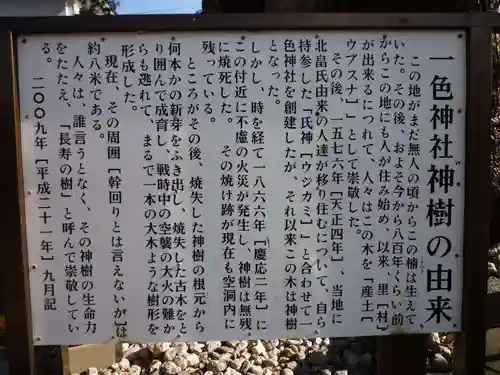 一色神社神樹の由来
この地がまだ無人の頃からこの楠は生えて
いた。その後、およそ今から八百年くらい前
からこの地にも人が住み始め、以来、里［村］
が出来るにつれて、人々はこの木を「産土［
ウブスナ］」として崇敬した。
その後、一五七六年［天正四年］、当地に
北畠氏由来の人達が移り住むについて、自ら
持参した「氏神［ウジガミ］」と合わせて一
色神社を創建したが、それ以来この木は神樹
となった。
しかし、時を経て一八六六年［慶応二年］に
この付近に不慮の火災が発生し、神樹は無残
に焼死した。その焼け跡が現在も空洞内に
残っている。
ところがその後、焼失した神樹の根元から
何本かの新芽をふき出し、焼失した古木をと
り囲んで成育し、戦時中の空襲の大火の難か
らも逃れて、まるで一本の大木ような樹形を
形成した。
現在、その周囲［幹回りとは言えないが］は
約八米である。
人々は、誰言うとなく、その神樹の生命力
をたたえ、「長寿の樹」と呼んで崇敬してい
る。
二〇〇九年［平成二十一年］九月記